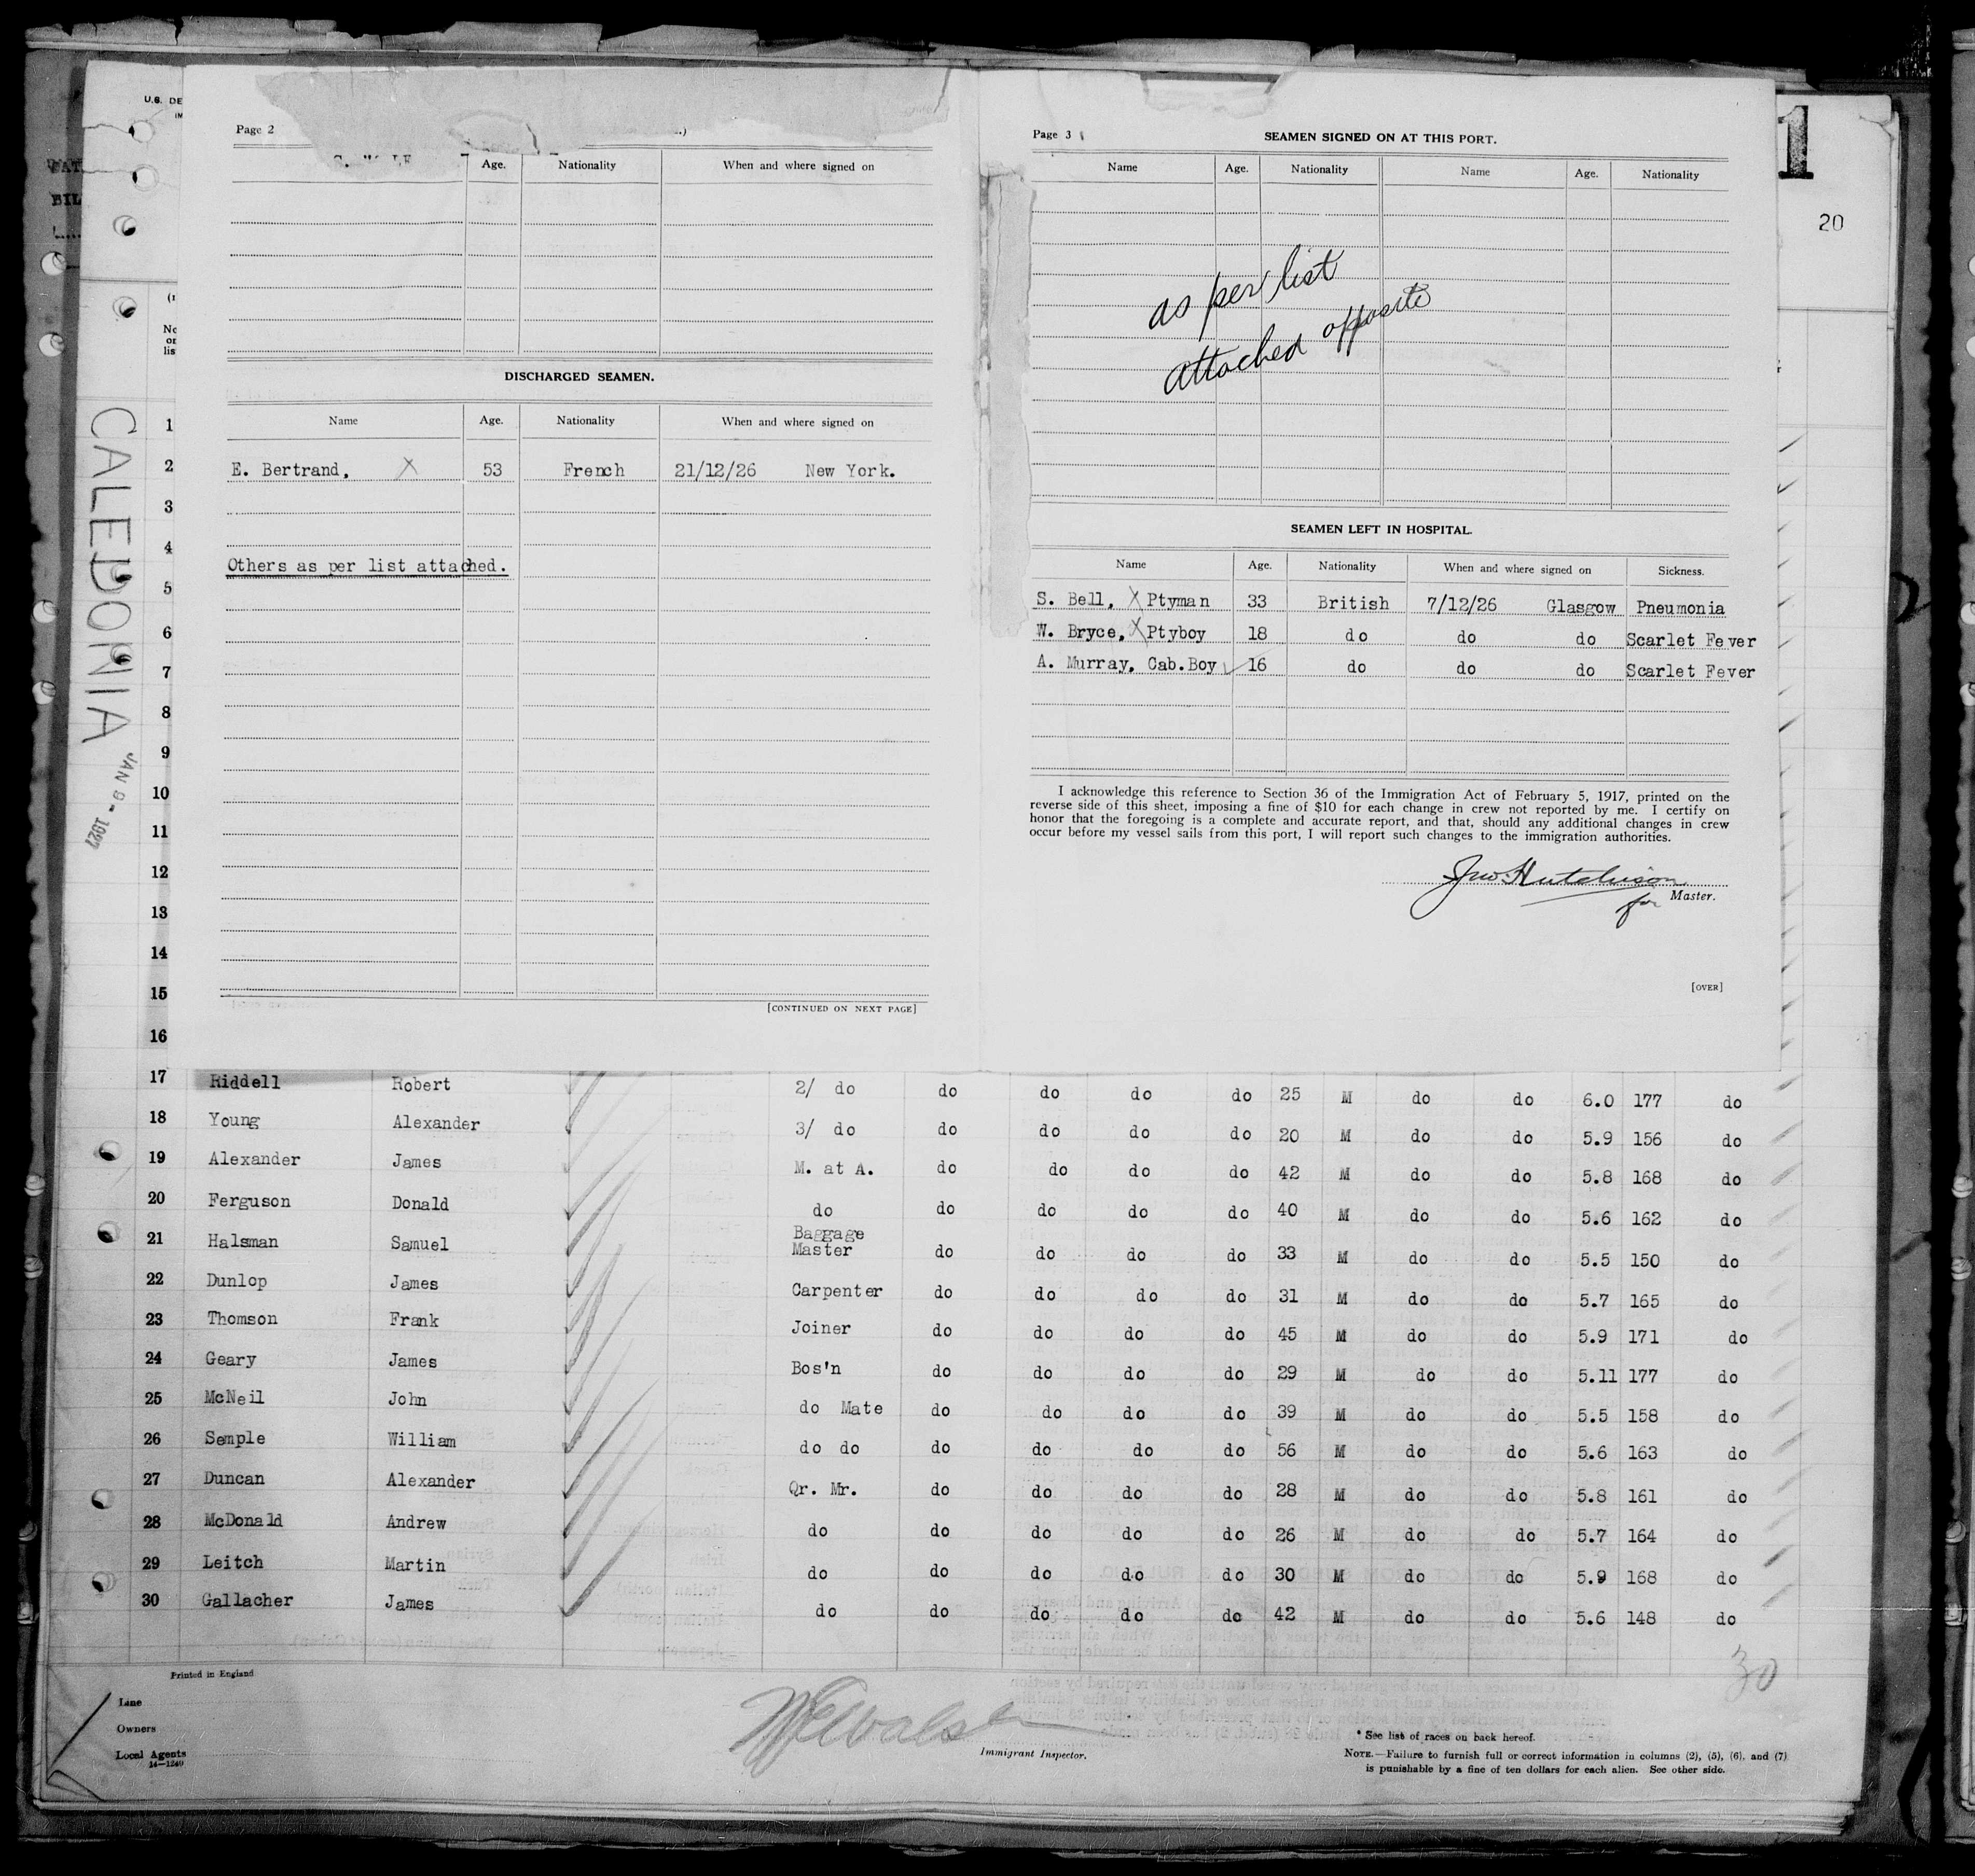 U.S. DE
IM
Page 2
Age. Nationality When and where signed on
DISCHARGED SEAMEN.
Name Age. Nationality When and where signed on
E. Bertrand, X 53 French 21/12/26 New York.
Others as per list attached.
[CONTINUED ON NEXT PAGE]
Page 3
SEAMEN SIGNED ON AT THIS PORT.
Name Age. Nationality Name Age. Nationality
as per list
attached opposite
SEAMEN LEFT IN HOSPITAL.
Name Age. Nationality When and where signed on Sickness.
S. Bell, X Ptyman 33 British 7/12/26 Glasgow Pneumonia
W. Bryce, X Ptyboy 18 do do do Scarlet Fever
A. Murray, Cab.Boy 16 do do do Scarlet Fever
I acknowledge this reference to Section 36 of the Immigration Act of February 5, 1917, printed on the
reverse side of this sheet, imposing a fine of $10 for each change in crew not reported by me. I certify on
honor that the foregoing is a complete and accurate report, and that, should any additional changes in crew
occur before my vessel sails from this port, I will report such changes to the immigration authorities.
Jno. Hutchison
for Master.
[OVER]
1
20
CALEDONIA
JAN 9 - 1927
No
or
lis
1
2
3
4
5
6
7
8
9
10
11
12
13
14
15
16
17 Riddell Robert 2/ do do do do do 25 M do do 6.0 177 do
18 Young Alexander 3/ do do do do do 20 M do do 5.9 156 do
19 Alexander James M. at A. do do do do 42 M do do 5.8 168 do
20 Ferguson Donald do do do do do 40 M do do 5.6 162 do
21 Halsman Samuel Baggage Master do do do do 33 M do do 5.5 150 do
22 Dunlop James Carpenter do do do do 31 M do do 5.7 165 do
23 Thomson Frank Joiner do do do do 45 M do do 5.9 171 do
24 Geary James Bos'n do do do do 29 M do do 5.11 177 do
25 McNeil John do Mate do do do do 39 M do do 5.5 158 do
26 Semple William do do do do do do 56 M do do 5.6 163 do
27 Duncan Alexander Qr. Mr. do do do do 28 M do do 5.8 161 do
28 McDonald Andrew do do do do do 26 M do do 5.7 164 do
29 Leitch Martin do do do do do 30 M do do 5.9 168 do
30 Gallacher James do do do do do 42 M do do 5.6 148 do
30
Printed in England
Line
Owners
Local Agents
14—1240
Immigrant Inspector.
* See list of races on back hereof.
NOTE.—Failure to furnish full or correct information in columns (2), (5), (6), and (7)
is punishable by a fine of ten dollars for each alien. See other side.